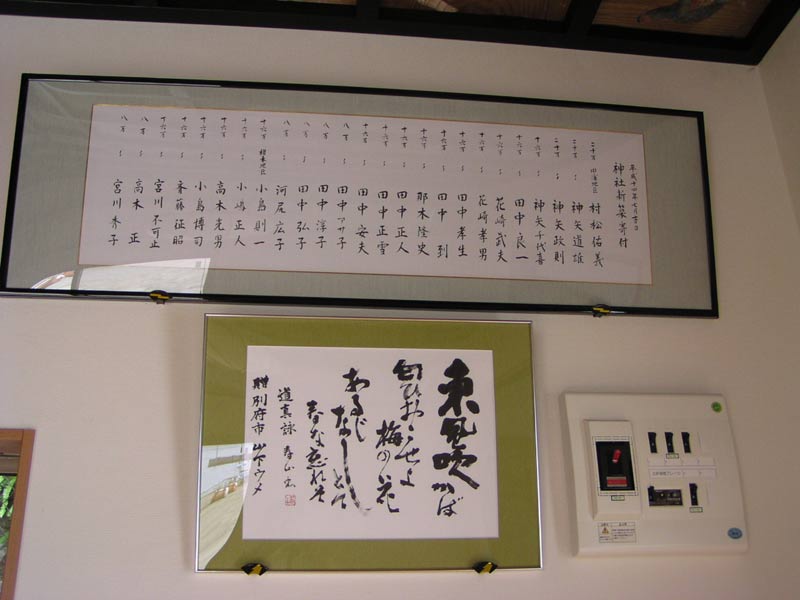 平成十四年七月吉日
神社新築寄付
二十万 田海地区 村松佑義
二十万 〃 神矢道雄
二十万 〃 神矢政則
十六万 〃 神矢千代喜
十六万 〃 田中良一
十六万 〃 花崎武夫
十六万 〃 花崎孝男
十六万 〃 田中孝生
十六万 〃 田中 到
十六万 〃 那木隆史
十六万 〃 田中正人
十六万 〃 田中正雪
十六万 〃 田中安夫
八万 〃 田中アサ子
八万 〃 田中淳子
八万 〃 田中弘子
八万 〃 河尻宏子
十六万 小島則一
十六万 〃 小嶋正人
十六万 〃 高木光男
十六万 〃 小島博司
十六万 〃 斉藤征昭
十六万 〃 宮川不可止
八万 〃 高木 正
八万 〃 宮川秀子
東風吹かば
匂ひおこせよ
梅の花
あるじ
なしとて
春な忘れそ
道真詠 寿山書
贈 別府市 山下ウメ